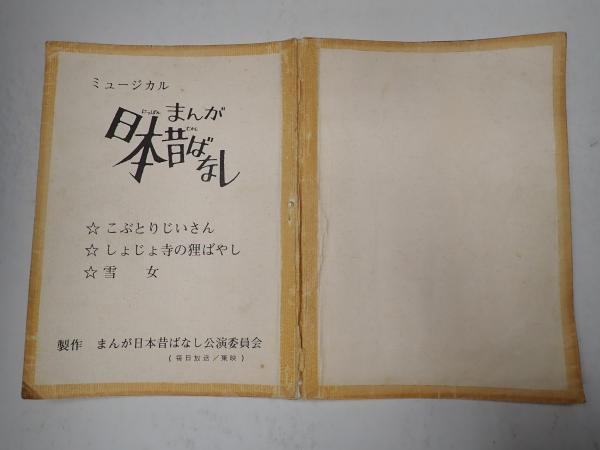 ミュージカル
まんが
にっぽん むかし
日本昔ばなし
☆ こぶとりじいさん
☆ しょじょ寺の狸ばやし
☆ 雪　　女
製作　まんが日本昔ばなし公演委員会
(毎日放送／東映)